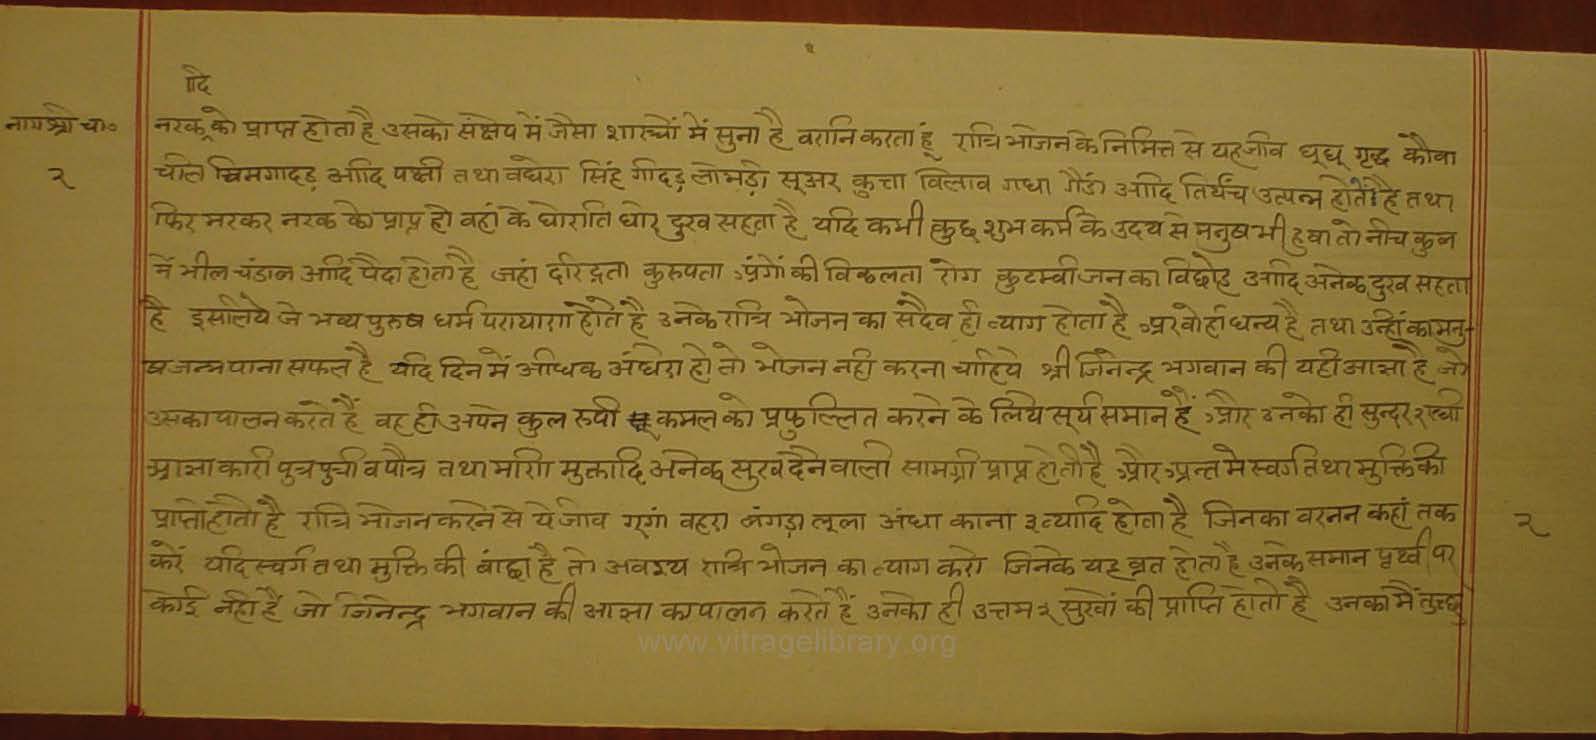 १
ादि
नागश्री च०
२
नरक को प्राप्त होता है उसको संक्षेप में जैसा शास्त्रों में सुना है वरनि करता हूं रात्रि भोजन के निमित्त से यह जीव घूघू गृद्ध कौवा
चील चिमगादड़ आदि पक्षी तथा वघेरा सिंह गीदड़ लोमड़ी सूअर कुत्ता विलाव गधा गैंडा आदि तिर्यंच उत्पन्न होता है तथा
फिर मरकर नरक को प्राप्त हो वहां के घोराति घोर दुख सहता है यदि कभी कुछ शुभ कर्म के उदय से मनुष भी हुवा तो नीच कुल
में भील चंडाल आदि पैदा होता है जहां दरिद्रता कुरुपता अंगों की विकलता रोग कुटम्बीजन का विछोह आदि अनेक दुख सहता
है इसलिये जे भव्य पुरुष धर्म परायारण होते है उनके रात्रि भोजन का सदैव ही त्याग होता है अर वोही धन्य है तथा उन्हीं का मनु-
ष जन्म पाना सफल है यदि दिन में अधिक अंधेरा हो तो भोजन नही करना चाहिये श्री जिनेन्द्र भगवान की यही आज्ञा है जो
उसका पालन करते हैं वह ही अपने कुल रुपी कमल को प्रफुल्लित करने के लिये सूर्य समान हैं और उनको ही सुन्दर २ स्त्री
आज्ञाकारी पुत्र पुत्री व पौत्र तथा मारिण मुक्तादि अनेक सुख दैने वाली सामग्री प्राप्त होती है और अन्त मे स्वर्ग तथा मुक्ति की
प्राप्ती होती है रात्रि भोजन करने से ये जीव गूंगा वहरा लंगड़ा लूला अंधा काना इत्यादि होता है जिनका वरनन कहां तक
२
करें यदि स्वर्ग तथा मुक्ति की बांछा है तो अवश्य रात्रि भोजन का त्याग करो जिनके यह व्रत होता है उनके समान पृथ्वी पर
कोई नही है जो जिनेन्द्र भगवान की आज्ञा का पालन करते हैं उनको ही उत्तम २ सुखों की प्राप्ति होती है उनका मैं तुच्छ
www.vitragelibrary.org